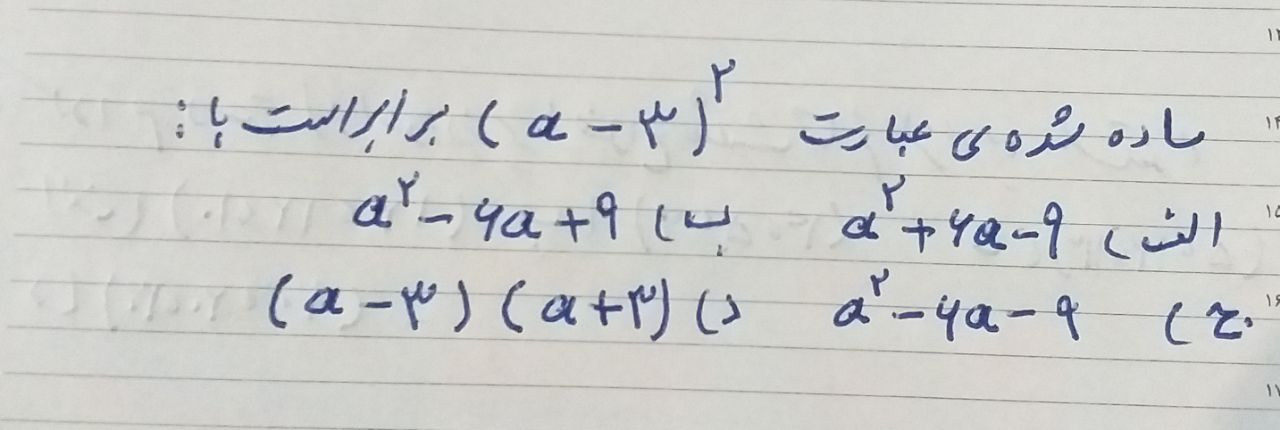 ساده شده ی عبارت (a - ۳)^۲ برابر است با:
الف) a^۲ + ۶a - ۹ ب) a^۲ - ۶a + ۹
ج) a^۲ - ۶a - ۹ د) (a - ۳) (a + ۳)